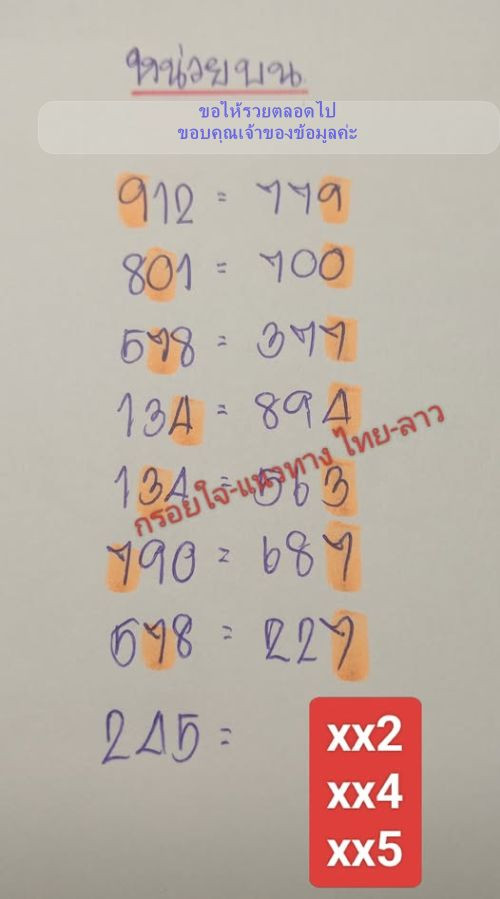 หน่วยบน
ขอให้รวยตลอดไป
ขอบคุณเจ้าของข้อมูลค่ะ
912 = 779
801 = 700
578 = 377
134 = 894
134 = 563
790 = 687
578 = 227
กรอยใจ-แนวทาง ไทย-ลาว
245 =
xx2
xx4
xx5